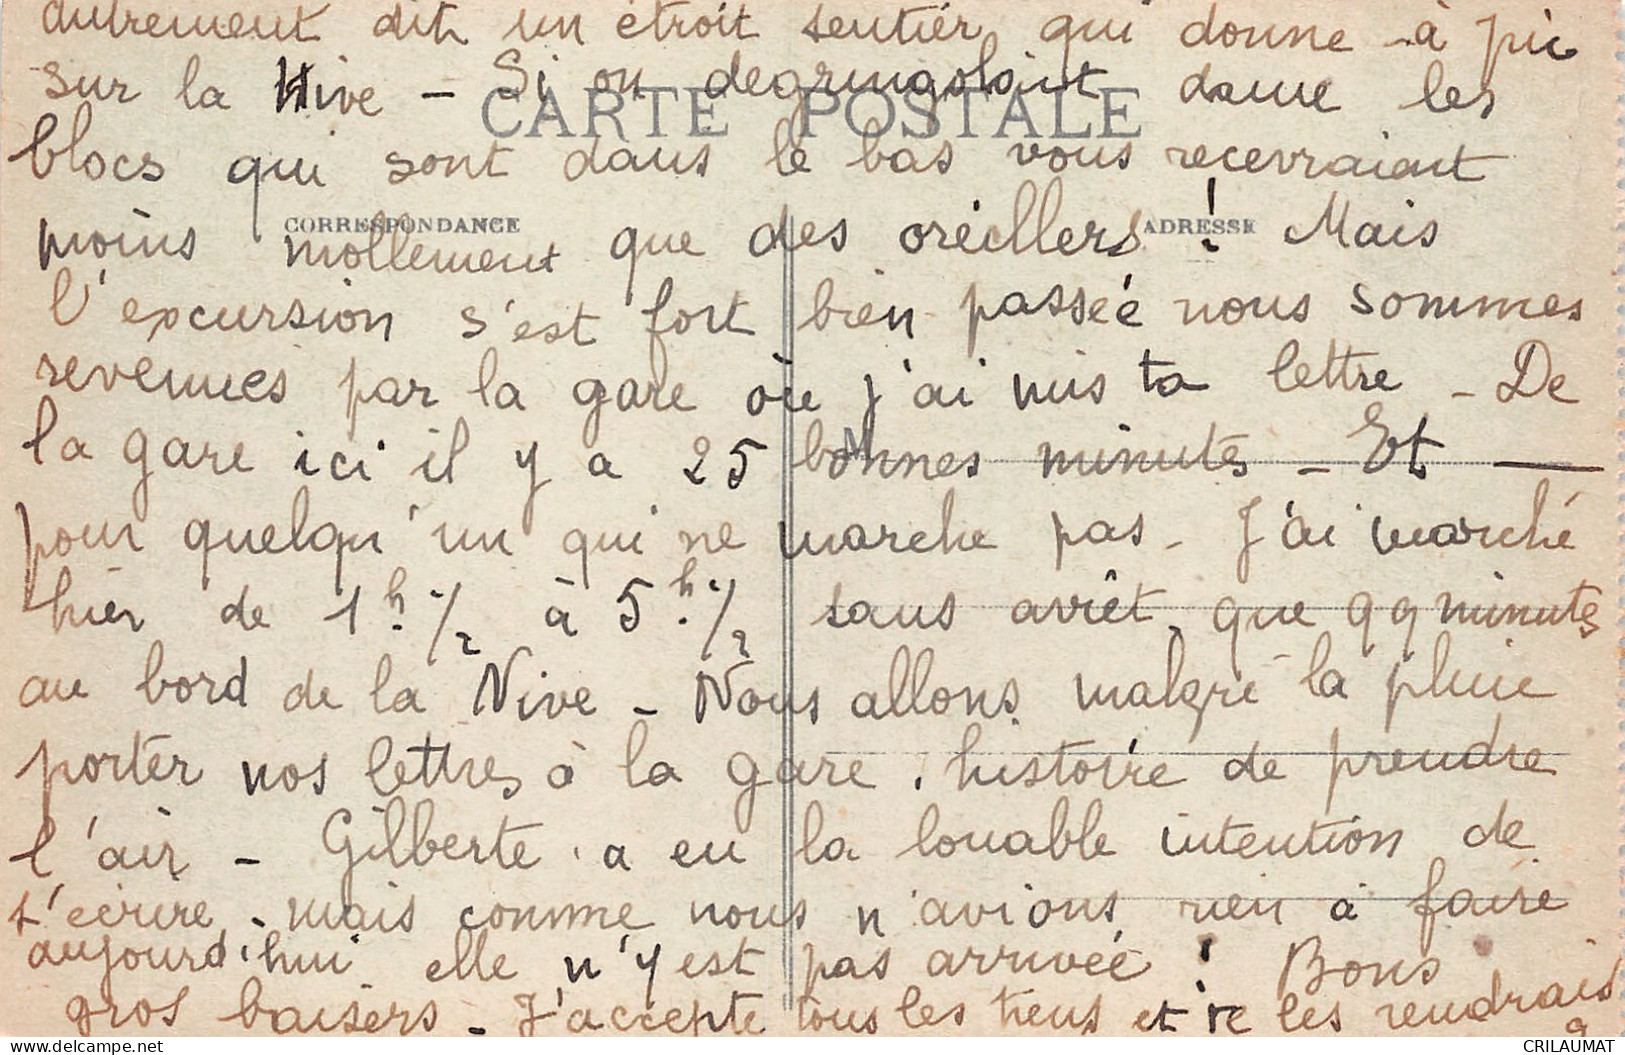 autrement dit un étroit sentier qui donne à pic
sur la Nive - Si on dégringolait dame les
CARTE POSTALE
blocs qui sont dans le bas vous recevraient
CORRESPONDANCE
ADRESSE
moins mollement que des oreillers ! Mais
l'excursion s'est fort bien passée nous sommes
revenues par la gare où j'ai mis ta lettre - De
la gare ici il y a 25 bonnes minutes - Et
pour quelqu'un qui ne marche pas - J'ai marché
hier de 1h. 1/2 à 5h. 1/2 sans arrêt, que qq minutes
au bord de la Nive - Nous allons malgré la pluie
porter nos lettres à la gare, histoire de prendre
l'air - Gilberte a eu la louable intention de
t'écrire, mais comme nous n'avions rien à faire
aujourd'hui elle n'y est pas arrivée ! Bons
gros baisers - J'accepte tous les tiens et te les rendrais
CRILAUMAT